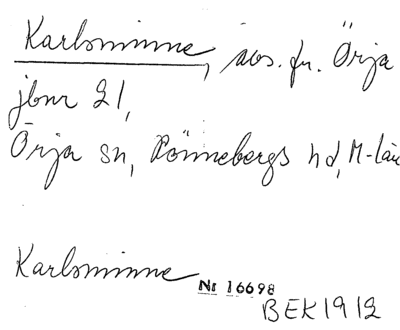 Karlsminne, avs. fr. Örja
jbnr 21,
Örja sn, Rönnebergs hd, M-län
Karlsminne
Nr 16698
BEK1912